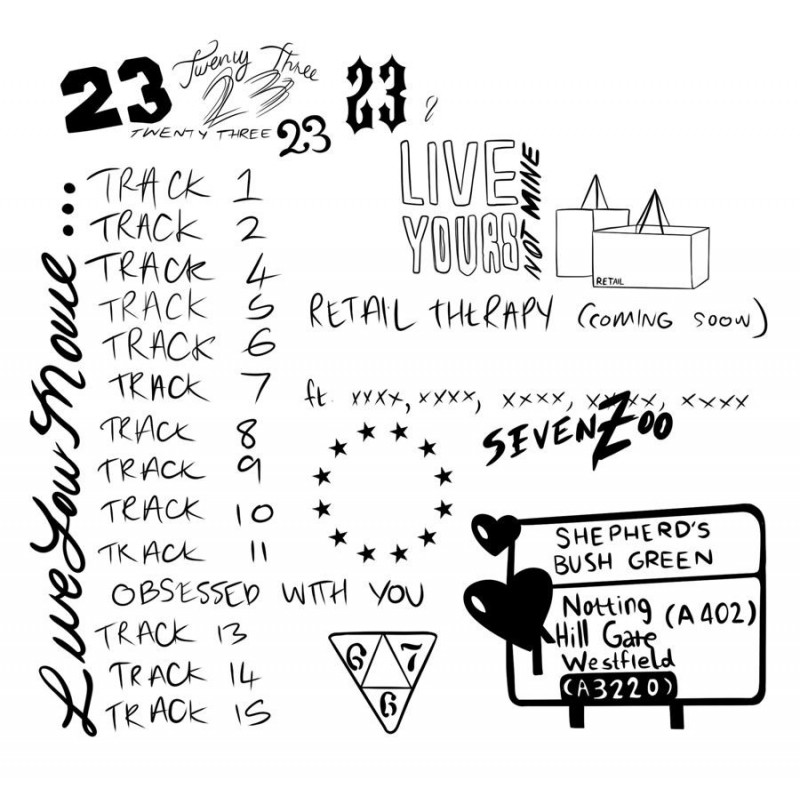 23
Twenty Three
23
TWENTY THREE
23
23
Live Your Movie...
TRACK 1
TRACK 2
TRACK 4
TRACK 5
TRACK 6
TRACK 7
TRACK 8
TRACK 9
TRACK 10
TRACK 11
OBSESSED WITH YOU
TRACK 13
TRACK 14
TRACK 15
LIVE
YOURS
NOT MINE
RETAIL
RETAIL THERAPY (COMING SOON)
ft. xxxx, xxxx, xxxx, xxxx, xxxx
SEVEN ZOO
6 7
6
SHEPHERD'S
BUSH GREEN
Notting
Hill Gate
(A402)
Westfield
(A3220)